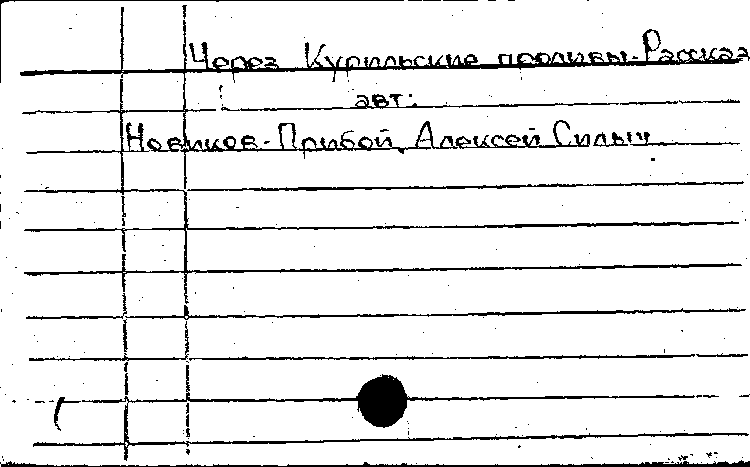 Через Курильские проливы. Рассказ
авт:
Новиков-Прибой, Алексей Силыч